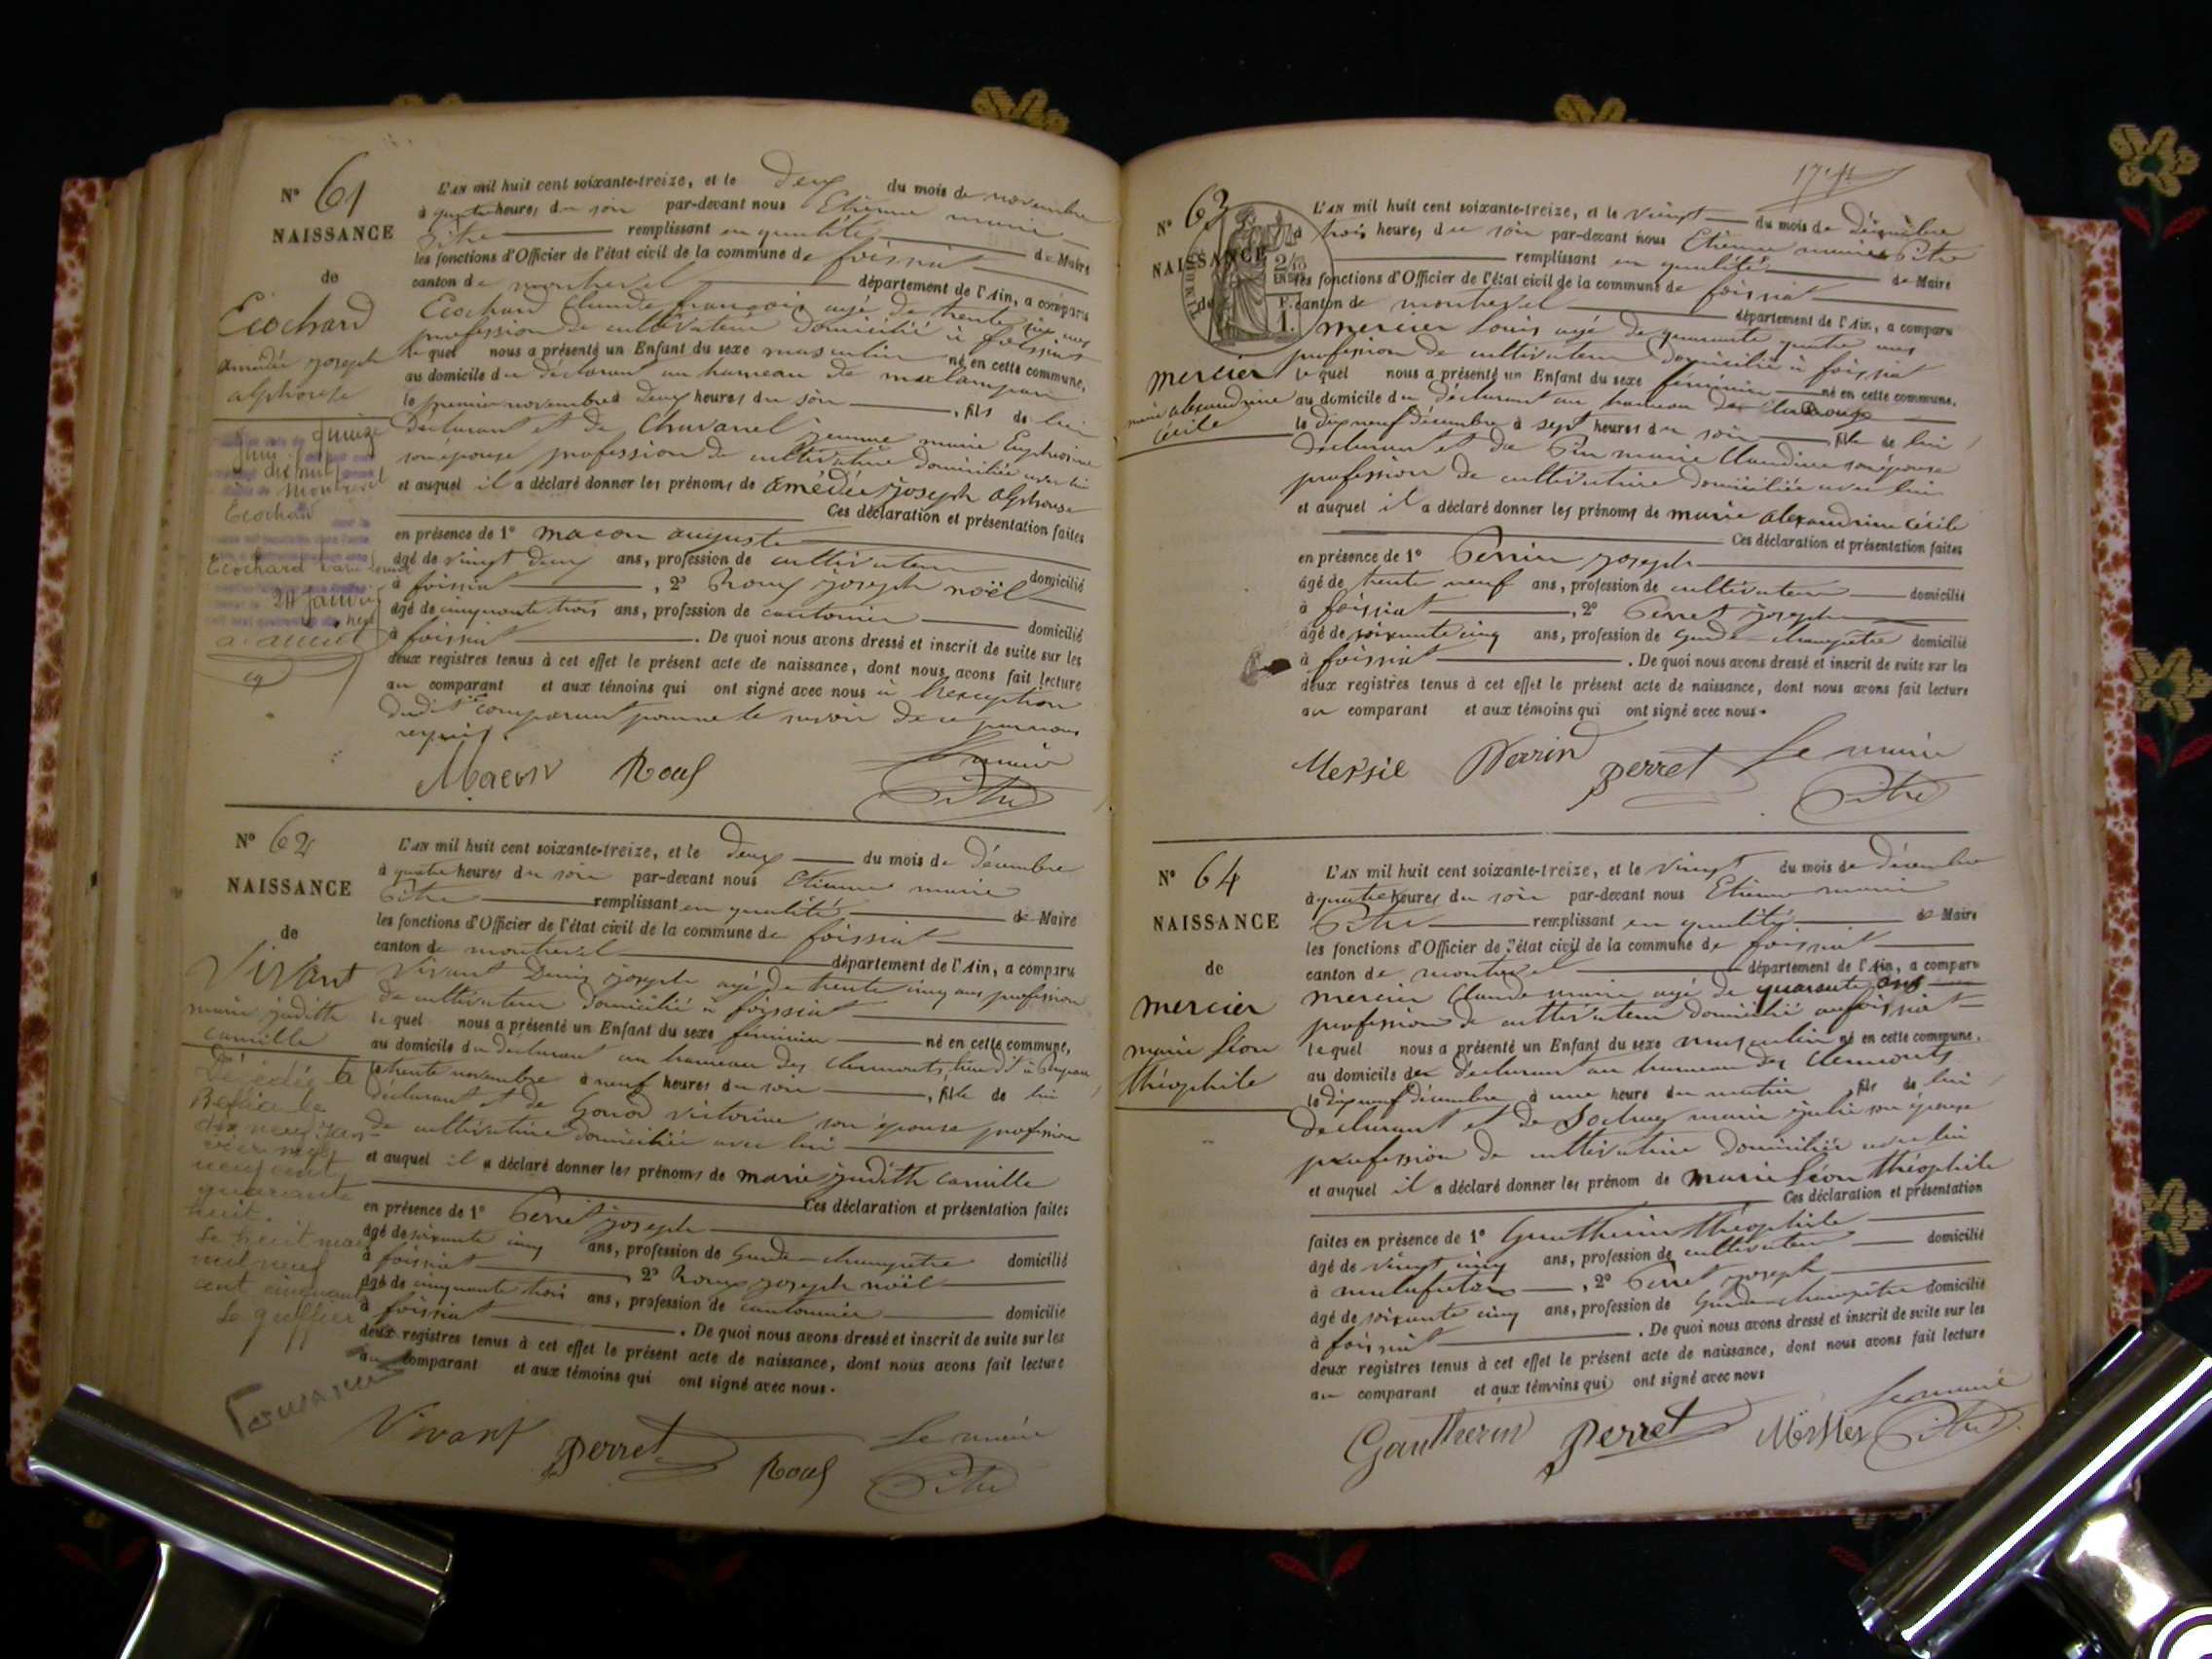 N° 61
NAISSANCE
de
Ecochard
amédée joseph
alphonse
L'AN mil huit cent soixante-treize, et le deux du mois de novembre
à quatre heures du soir par-devant nous Etienne marie
Pitre remplissant en qualité de Maire
les fonctions d'Officier de l'état civil de la commune de foissiat
canton de montrevel département de l'Ain, a comparu
Ecochard Claude françois agé de trente six ans
profession de cultivateur domicilié à foissiat
lequel nous a présenté un Enfant du sexe masculin né en cette commune,
au domicile du déclarant au hameau de
le premier novembre à deux heures du soir, fils de lui
Déclarant et de Chavanel jeanne marie Euphrosine
son épouse profession de cultivatrice domiciliée avec lui
et auquel il a déclaré donner les prénoms de amédée joseph alphonse
Ces déclaration et présentation faites
en présence de 1° macon auguste
âgé de vingt deux ans, profession de cultivateur domicilié
à foissiat, 2° Roux joseph noël
âgé de cinquante trois ans, profession de cantonnier domicilié
à foissiat. De quoi nous avons dressé et inscrit de suite sur les
deux registres tenus à cet effet le présent acte de naissance, dont nous avons fait lecture
au comparant et aux témoins qui ont signé avec nous à l'exception
dudit comparant pour ne le savoir de ce par nous
requis.
Macon Roux Le maire
Pitre
dix neuf
Montrevel
Ecochard
24 janvier
N° 62
NAISSANCE
de
Vivant
marie judith
camille
L'AN mil huit cent soixante-treize, et le deux du mois de Décembre
à quatre heures du soir par-devant nous Etienne marie
Pitre remplissant en qualité de Maire
les fonctions d'Officier de l'état civil de la commune de foissiat
canton de montrevel département de l'Ain, a comparu
Vivant Denis joseph agé de trente cinq ans profession
de cultivateur domicilié à foissiat
lequel nous a présenté un Enfant du sexe féminin né en cette commune,
au domicile du déclarant au hameau des Clermonts, lieu dit à
le trente novembre à neuf heures du soir, fille de lui
déclarant et de Gonod victorine son épouse profession
de cultivatrice domiciliée avec lui
et auquel il a déclaré donner les prénoms de marie judith camille
Ces déclaration et présentation faites
en présence de 1° Perret joseph
âgé de soixante cinq ans, profession de Garde-champêtre domicilié
à foissiat, 2° Roux joseph noël
âgé de cinquante trois ans, profession de cantonnier domicilié
à foissiat. De quoi nous avons dressé et inscrit de suite sur les
deux registres tenus à cet effet le présent acte de naissance, dont nous avons fait lecture
au comparant et aux témoins qui ont signé avec nous.
Vivant Perret Roux Le maire
Pitre
Décédée à
le
dix neuf jan-
vier mil
neuf cent
quarante
huit.
Le huit mai
mil neuf
cent cinquante
Le greffier
N° 63
NAISSANCE
de
mercier
marie alexandrine
cécile
L'AN mil huit cent soixante-treize, et le vingt du mois de Décembre
à trois heures du soir par-devant nous Etienne marie Pitre
remplissant en qualité de Maire
les fonctions d'Officier de l'état civil de la commune de foissiat
canton de montrevel département de l'Ain, a comparu
mercier Louis agé de quarante quatre ans
profession de cultivateur domicilié à foissiat
lequel nous a présenté un Enfant du sexe féminin né en cette commune,
au domicile du déclarant au hameau de
le dix neuf décembre à sept heures du soir, fille de lui
déclarant et de Pin marie Claudine son épouse
profession de cultivatrice domiciliée avec lui
et auquel il a déclaré donner les prénoms de marie alexandrine cécile
Ces déclaration et présentation faites
en présence de 1° Perrin joseph
âgé de trente neuf ans, profession de cultivateur domicilié
à foissiat, 2° Perret joseph
âgé de soixante cinq ans, profession de Garde-champêtre domicilié
à foissiat. De quoi nous avons dressé et inscrit de suite sur les
deux registres tenus à cet effet le présent acte de naissance, dont nous avons fait lecture
au comparant et aux témoins qui ont signé avec nous.
Mersie Perrin Perret Le maire
Pitre
N° 64
NAISSANCE
de
mercier
marie Léon
théophile
L'AN mil huit cent soixante-treize, et le vingt du mois de décembre
à quatre heures du soir par-devant nous Etienne marie
Pitre remplissant en qualité de Maire
les fonctions d'Officier de l'état civil de la commune de foissiat
canton de montrevel département de l'Ain, a comparu
mercier Claude marie agé de quarante ans
profession de cultivateur domicilié à foissiat
lequel nous a présenté un Enfant du sexe masculin né en cette commune,
au domicile du déclarant au hameau des Clermonts
le dix neuf décembre à une heure du matin fils de lui
déclarant et de marie julie son épouse
profession de cultivatrice domiciliée avec lui
et auquel il a déclaré donner les prénom de marie Léon théophile
Ces déclaration et présentation
faites en présence de 1° Gautherin théophile
âgé de vingt cinq ans, profession de cultivateur domicilié
à malafretaz, 2° Perret joseph
âgé de soixante cinq ans, profession de Garde-champêtre domicilié
à foissiat. De quoi nous avons dressé et inscrit de suite sur les
deux registres tenus à cet effet le présent acte de naissance, dont nous avons fait lecture
au comparant et aux témoins qui ont signé avec nous
Gautherin Perret Le maire
Pitre